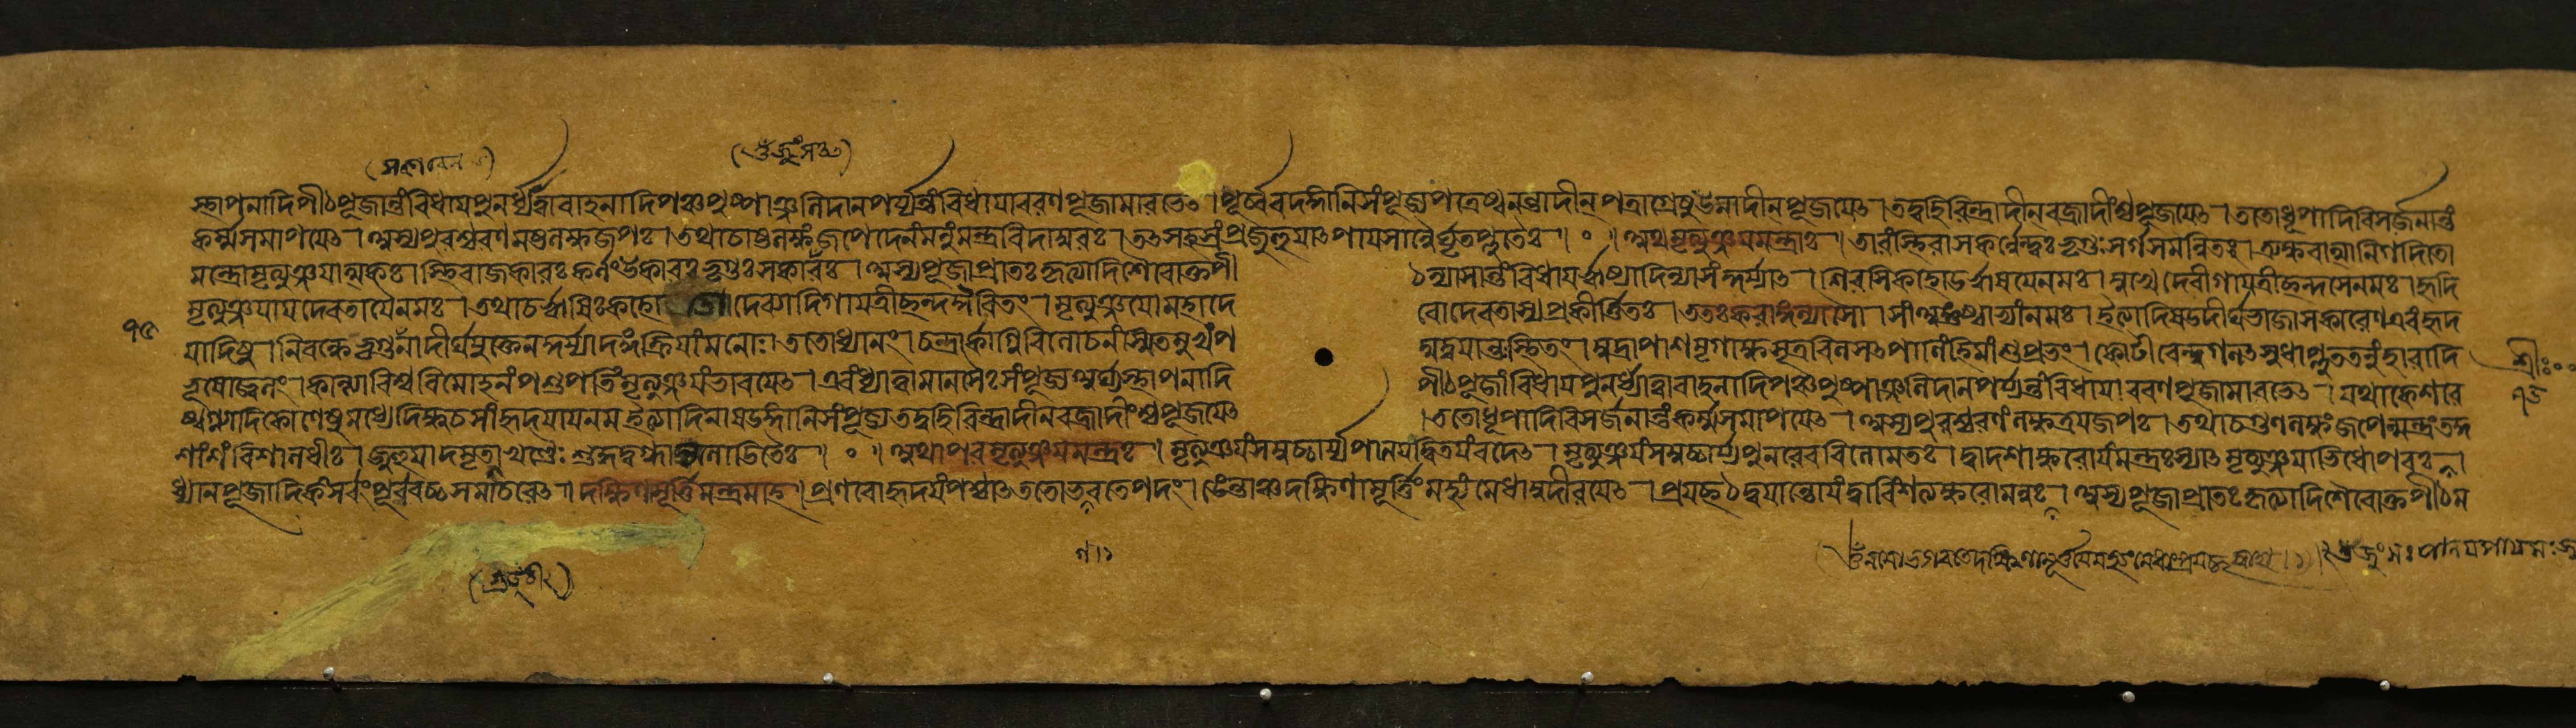 স্থাপনাদিপীঠপূজান্তংবিধায়পুনর্ধ্যাত্বাবাহনাদিপঞ্চপুষ্পাঞ্জলিদানপর্য্যন্তংবিধায়াবরণপূজামারভেৎ । পূর্ব্ববদঙ্গানিসংপূজ্য তদ্বহিরিন্দ্রাদীন্বজ্রাদীংশ্চপূজয়েৎ । ততোধূপাদিবিসর্জনান্তং
কর্ম্মসমাপয়েৎ । অস্যপুরশ্চরণমষ্টলক্ষজপঃ । তথাচাষ্টলক্ষংজপেদেনংমনুংমন্ত্রবিদাম্বরঃ । তৎসহস্রংপ্রজুহুয়াৎপায়সান্নৈর্ঘৃতপ্লুতৈঃ । ০ । অথমৃত্যুঞ্জয়মন্ত্রঃ । তারংস্থিরাসকর্ণেন্দ্বঃভৃগুঃসর্গসমন্বিতঃ । ত্র্যক্ষরাত্মানিগদিতো
মন্ত্রোমৃত্যুঞ্জয়াত্মকঃ । স্থিরাজকারঃ ভৃগুঃসকারঃ । অস্যপূজাপ্রাতঃকৃত্যাদিশৈবোক্তপী ঠন্যাসান্তংবিধায়ঋষ্যাদিন্যাসংকুর্য্যাৎ । শিরসিকহোড়ঋষয়েনমঃ । মুখেদেবীগায়ত্রীচ্ছন্দসেনমঃ । হৃদি
মৃত্যুঞ্জয়ায়দেবতায়ৈনমঃ । তথাচঋষিঃকহোড়ো দেব্যাদিগায়ত্রীচ্ছন্দঈরিতং । মৃত্যুঞ্জয়োমহাদে বোদেবতাস্যপ্রকীর্ত্তিতঃ । ততঃকরাঙ্গন্যাসৌ । সাং অঙ্গুষ্ঠাভ্যাংনমঃ । ইত্যাদিষড্দীর্ঘভাজাসকারেণএবংহৃদ
য়াদিষু । ততোধ্যানং । চন্দ্রার্কাগ্নিবিলোচনংস্মিতমুখংপ দ্মদ্বয়ান্তঃস্থিতং । মুদ্রাপাশমৃগাক্ষসূত্রবিলসৎপাণিংহিমাংশুপ্রভং । কোটীরেন্দুগলৎসুধাপ্লুততনুংহারাদি
ভূষোজ্জ্বলং । কান্ত্যাবিশ্ববিমোহনংপশুপতিংমৃত্যুঞ্জয়ংভাবয়েৎ । এবংধ্যাত্বামানসৈঃসংপূজ্যঅর্ঘ্যস্থাপনাদি পীঠপূজাংবিধায়পুনর্ধ্যাত্বাবাহনাদিপঞ্চপুষ্পাঞ্জলিদানপর্য্যন্তংবিধায়াবরণপূজামারভেৎ । যথাকেশরে
ষ্বগ্ন্যাদিকোণেষুমধ্যেদিক্ষুচসাংহৃদয়ায়নমইত্যাদিনাষডঙ্গানিসংপূজ্যতদ্বহিরিন্দ্রাদীন্বজ্রাদীংশ্চপূজয়েৎ । ততোধূপাদিবিসর্জনান্তংকর্ম্মসমাপয়েৎ । অস্যপুরশ্চরণংলক্ষত্রয়জপঃ । তথাচগুণলক্ষংজপেন্মন্ত্রংতদ্দ
শাংশংবিশালধীঃ । জুহুয়াদমৃতাখণ্ডৈঃ । ০ । অথাপরমৃত্যুঞ্জয়মন্ত্রঃ । মৃত্যুঞ্জয়ংসমুচ্চার্য্যপালয়দ্বিতয়ংবদেৎ । মৃত্যুঞ্জয়ংসমুচ্চার্য্যপুনরেব দ্বাদশাক্ষরোয়ংমন্ত্রঃস্যাৎমৃত্যুঞ্জয়াভিধোপরঃ ।
ধ্যানপূজাদিকংসর্ব্বংপূর্ব্ববচ্চসমাচরেৎ । দক্ষিণামূর্ত্তিমন্ত্রমাহ । প্রণবোহৃদয়ংপশ্চাৎততোভগবতেপদং । ঙেন্তাঞ্চদক্ষিণামূর্ত্তিংমহ্যংমেধামুদীরয়েৎ । প্রয়চ্ছঠদ্বয়ান্তোয়ংদ্বাবিংশত্যক্ষরোমনুঃ । অস্যপূজাপ্রাতঃকৃত্যাদিশৈবোক্তপীঠম
১৫
শ্রীঃ
১৫
(ওঁজুংসঃ)
(গুড়ূচী)
(ওঁনমোভগবতেদক্ষিণামূর্ত্তয়েমহ্যংমেধাংপ্রয়চ্ছস্বাহা)